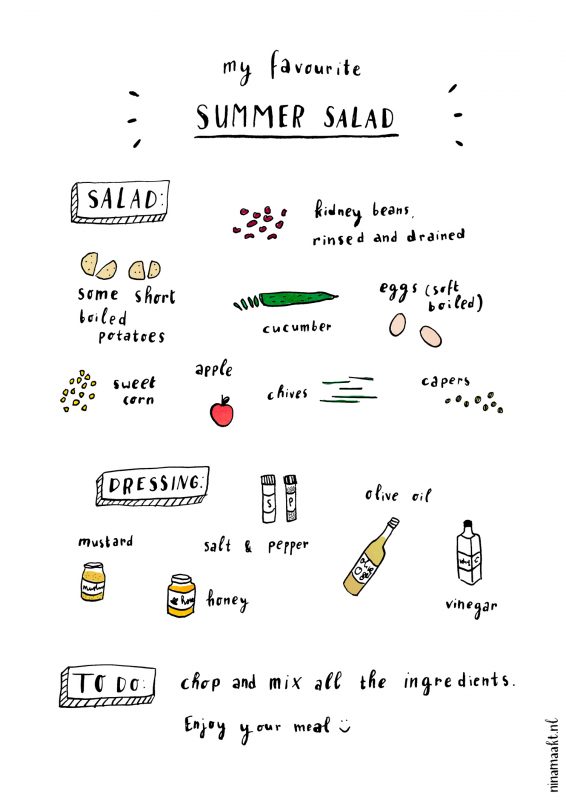 my favourite
SUMMER SALAD
SALAD:
kidney beans,
rinsed and drained
some short
boiled
potatoes
cucumber
eggs (soft
boiled)
sweet
corn
apple
chives
capers
DRESSING:
S P
olive oil
mustard
salt & pepper
honey
vinegar
TO DO:
chop and mix all the ingredients.
Enjoy your meal
ninamaakt.nl